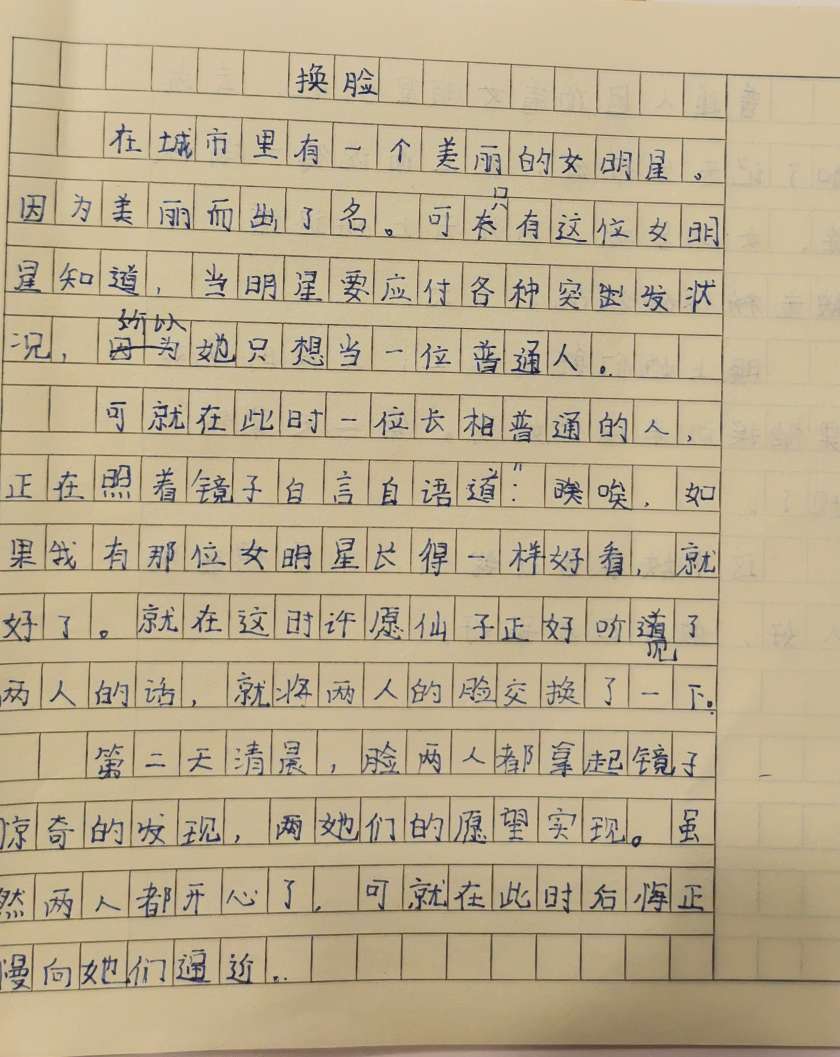 换脸
在城市里有一个美丽的女明星。
因为美丽而出了名。可只有这位女明
星知道，当明星要应付各种突发状
况，所以她只想当一位普通人。
可就在此时一位长相普通的人，
正在照着镜子自言自语道："唉唉，如
果我有那位女明星长得一样好看，就
好了。就在这时许愿仙子正好听见了
两人的话，就将两人的脸交换了一下。
第二天清晨，脸两人都拿起镜子
惊奇的发现，两她们的愿望实现。虽
然两人都开心了，可就在此时后悔正
慢向她们逼近..